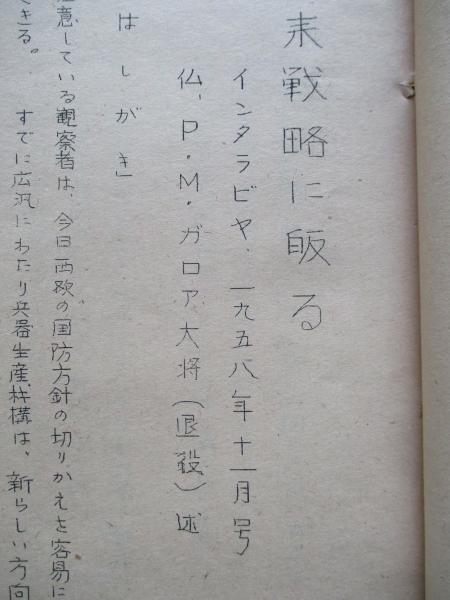 末戦略に皈る
インタラビヤ、一九五八年十一月号
仏、P.M.ガロア大将(退役)述
はしがき」
意している観察者は、今日西欧の国防方針の切りかえを容易に
きる。 すでに広汎にわたり兵器生産機構は、新らしい方向